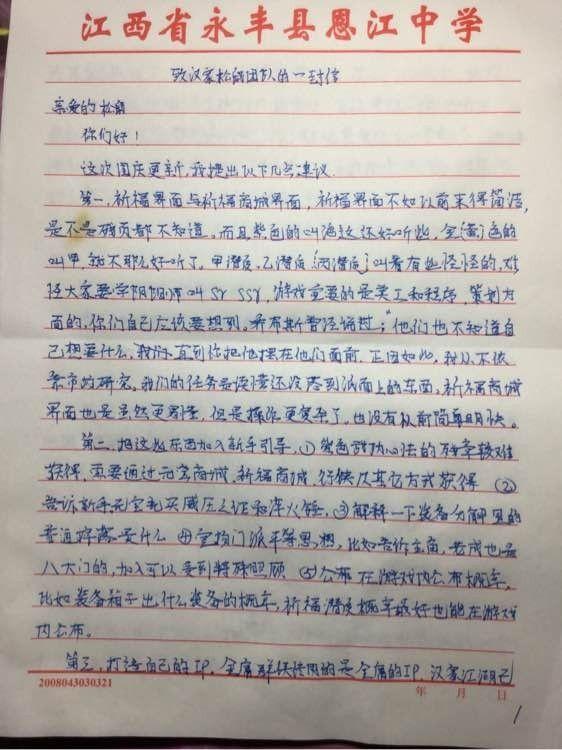 江西省永丰县恩江中学
致汉家松鼠团队的一封信
亲爱的松鼠
你们好！
这次国庆更新，我提出以下几点建议
第一，祈福界面与祈福商城界面，祈福界面不如以前来得简洁，
是不是碎页都不知道。而且紫色的叫绝这还好听些，金（黄）色的
叫甲，就不那么好听了。甲潜质，乙潜质，丙潜质，叫着有些怪怪的，难
怪大家要学阴阳师叫SR SSR，游戏重要的是美工和程序，策划方
面的，你们自己应该要想到。乔布斯曾经说过；他们也不知道自
己想要什么，直到你把他摆在他们面前，正因如此，我从不依
靠市场研究。我们的任务是读懂还没落到纸面上的东西，祈福商城
界面也是虽然更 但是操作更复杂了，也没有从前简单且明快。
第二，把这些东西加入新手引导，①紫色武功心法的残章较难
获得，更要通过元宝商城，祈福商城，行侠及其它方式获得 ②
告诉新手元宝先买威压之证和淬火锤，③解释一下装备分解里的
普通 是什么 ④ 门派平等思想，比如告诉主角，若成也是
八大门的，加入可以受到特殊照顾 ⑤公布在游戏内公布概率，
比如装备箱子出什么装备的概率，祈福潜质概率最好也能在游戏
内公布。
第三，打造自己的IP，金庸群侠传用的是金庸的IP，汉家江湖已
2008043030321
年 月 日
1